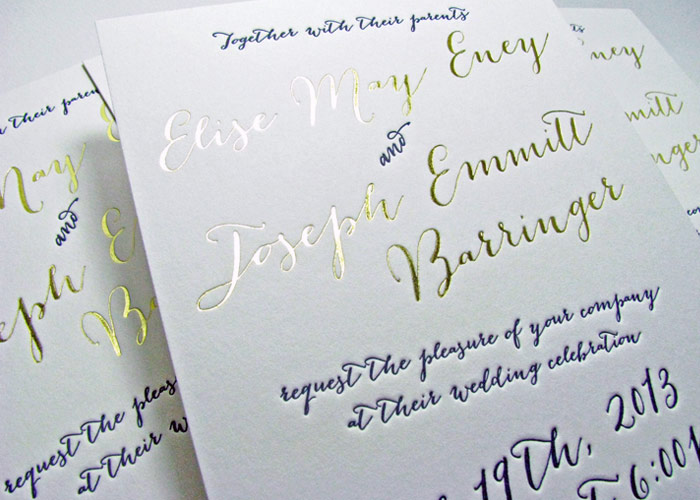 Together with their parents
Elise May Eney
and
Joseph Emmitt
Barringer
request the pleasure of your company
at their wedding celebration
19th, 2013
6:00
n their paren
May
and
eph E
Ba
request the pleas
at their w
ts
ney
mitt
inger